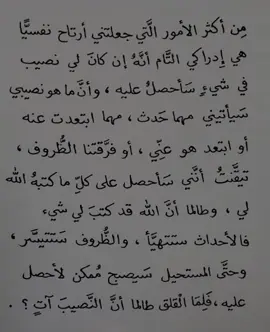 مِن أكثر الأمور الَّتي جعلتني أرتاح نفسيًّا
هي إدراكي التَّام أنَّهُ إن كانَ لي نصيب
في شيءٍ سَأحصلُ عليه ، وأنَّ ما هو نصيبي
سَيأتيني مهما حَدث ، مهما ابتعدت عنه
أو ابتعد هو عنِّي ، أو فرَّقتنا الظُّروف ،
تيقَّنتُ أنَّني سَأحصل على كلِّ ما كتبهُ الله
لي ، وطالما أنَّ الله قد كتبَ لي شيء
فالأحداث ستتهيَّأ ، والظُّروف سَتتيسَّر ،
وحتَّى المستحيل سَيصبح مُمكن لأحصل
عليه ، فَلِمَا القلق طالما أنَّ النَّصيبَ آتٍ ؟ .